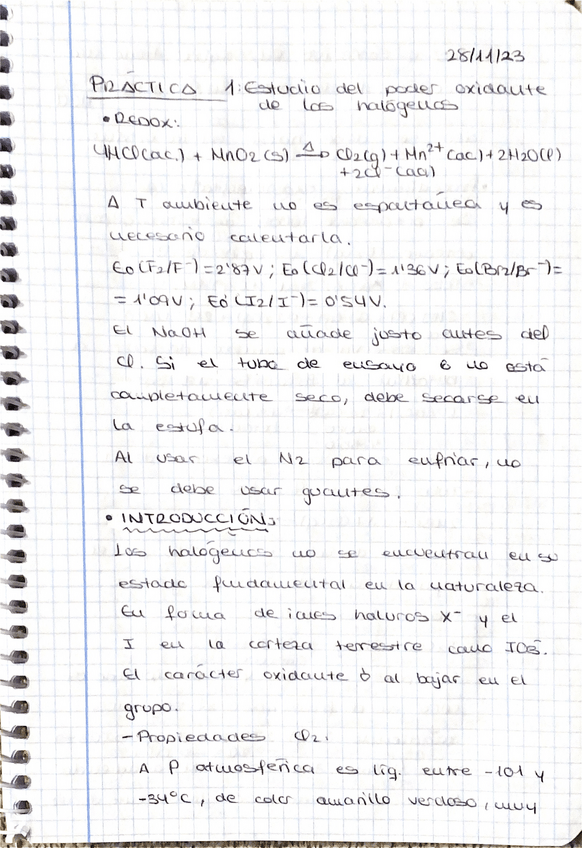 28/11/23
PRÁCTICA 1: Estudio del poder oxidante
de los halógenos
• REDOX:
4HCl(ac.) + MnO2 (s) —Δ→ Cl2(g) + Mn2+ (ac) + 2H2O(l)
+ 2Cl- (aq)
A T ambiente no es espontánea y es
necesario calentarla.
Eo (F2/F-) = 2'87V; Eo (Cl2/Cl-) = 1'36V; Eo(Br2/Br-) =
= 1'09V; Eo (I2/I-) = 0'54V.
El NaOH se añade justo antes del
Cl. Si el tubo de ensayo 6 no está
completamente seco, debe secarse en
la estufa.
Al usar el N2 para enfriar, no
se debe usar guantes.
• INTRODUCCIÓN:
Los halógenos no se encuentran en su
estado fundamental en la naturaleza.
En forma de iones haluros X- y el
I en la corteza terrestre como IO3-.
El carácter oxidante ↓ al bajar en el
grupo.
- Propiedades Cl2:
A P atmosférica es líq. entre -101 y
-34ºC, de color amarillo verdoso, muy